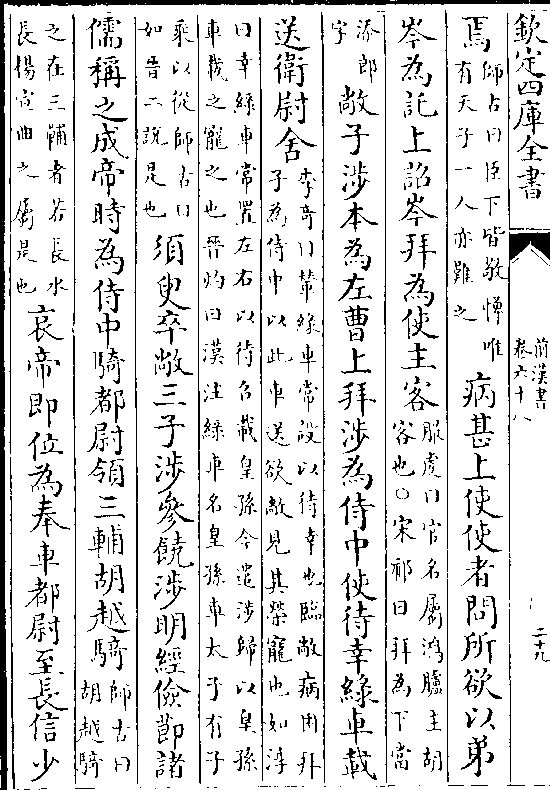 欽定四庫全書
前漢書
卷六十八
二十九
焉師古曰臣下皆敬憚唯有天子一人亦難之病甚上使使者問所欲以弟
岑為託上詔岑拜為使主客服虔曰官名屬鴻臚主胡客也○宋祁曰拜為下當
添郎字敞子涉本為左曹上拜涉為侍中使待幸綠車載
送衛尉舍李竒曰輦綠車常設以待幸也臨敞病困拜子為侍中以此車送欲敞見其榮寵也如淳
曰幸綠車常置左右以待召載皇孫今遣涉歸以皇孫車載之寵之也晉灼曰漢注綠車名皇孫車太子有子
乘以從師古曰如晉二說是也須臾卒敞三子涉參饒涉明經儉節諸
儒稱之成帝時為侍中騎都尉領三輔胡越騎師古曰胡越騎
之在三輔者若長水長楊宣曲之屬是也哀帝即位為奉車都尉至長信少